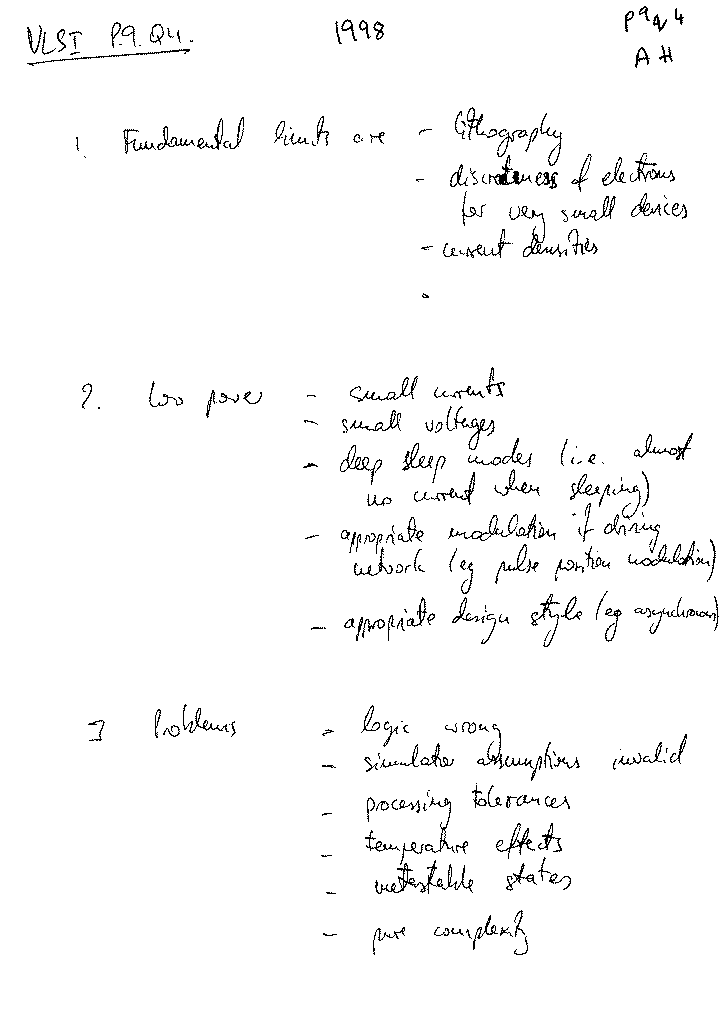 VLSI P.9. Q4.
1998
p9q4
AH
1. Fundamental limits are - lithography
- discreteness of electrons
for very small devices
- current densities
2. Low power - small currents
- small voltages
- deep sleep modes (i.e. almost
no current when sleeping)
- appropriate modulation if driving
network (eg pulse position modulation)
- appropriate design style (eg asynchronous)
3 Problems - logic wrong
- simulator assumptions invalid
- processing tolerances
- temperature effects
- metastable states
- pure complexity